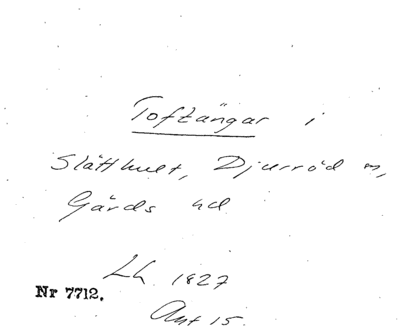 Toftängar i
Slätthult, Djurröd sn,
Gärds hd
Lh 1827
Nr 7712.
Ant 15.